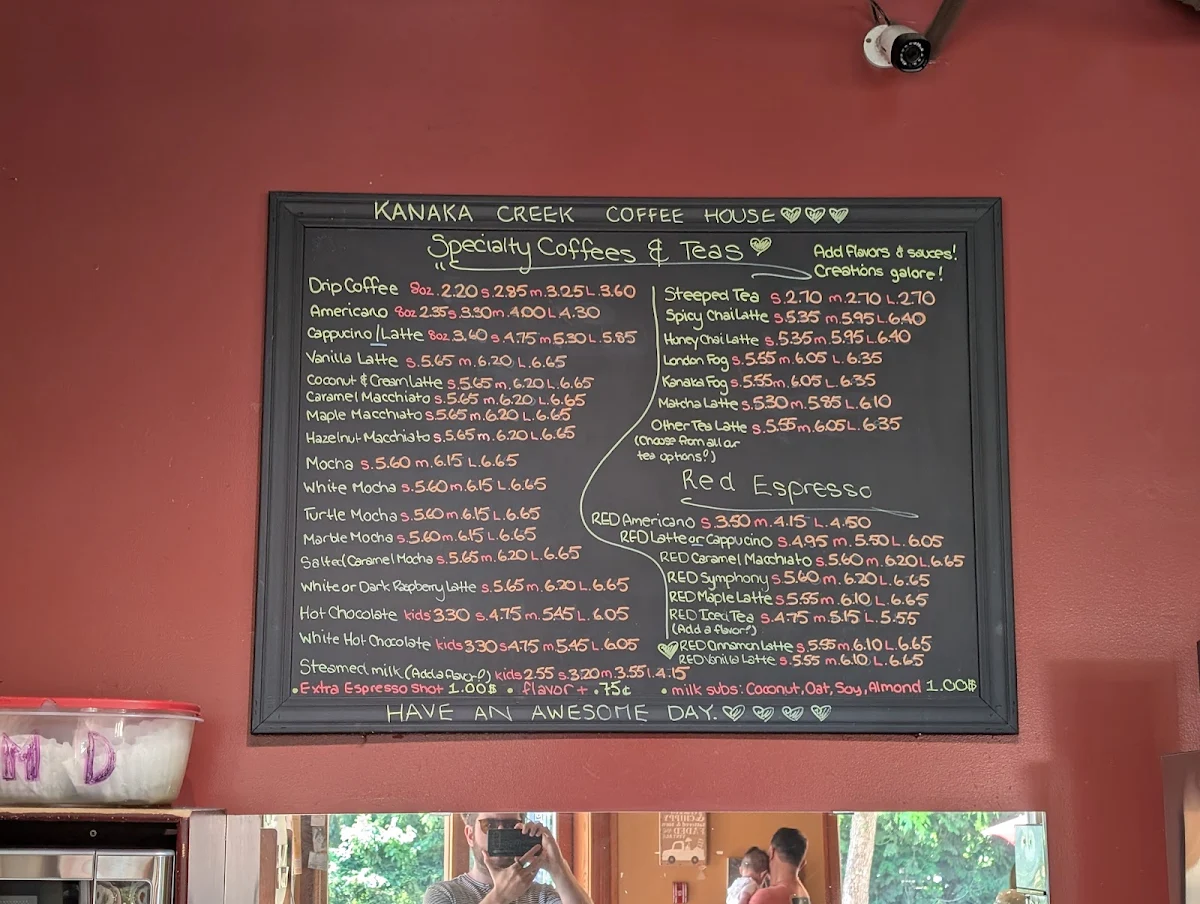 KANAKA CREEK COFFEE HOUSE
Specialty Coffees & Teas
Add flavors & sauces!
Creations galore!
Drip Coffee 8oz.2.20 s.2.85 m.3.25 L.3.60
Americano 8oz 2.35 s.3.30 m.4.00 L 4.30
Cappucino/Latte 8oz.3.60 s 4.75 m 5.30 L.5.85
Vanilla Latte s.5.65 m.6.20 L.6.65
Coconut & Cream Latte s.5.65 m.6.20 L.6.65
Caramel Macchiato s.5.65 m.6.20 L.6.65
Maple Macchiato s.5.65 m.6.20 L.6.65
Hazelnut Macchiato s.5.65 m.6.20 L.6.65
Mocha s.5.60 m.6.15 L.6.65
White Mocha s.5.60 m.6.15 L.6.65
Turtle Mocha s.5.60 m.6.15 L.6.65
Marble Mocha s.5.60 m.6.15 L.6.65
Salted Caramel Mocha s.5.65 m.6.20 L.6.65
White or Dark Raspberry Latte s.5.65 m.6.20 L.6.65
Hot Chocolate kids 3.30 s.4.75 m.5.45 L.6.05
White Hot Chocolate kids 3.30 s4.75 m.5.45 L.6.05
Steamed milk (Add a flavor?) kids 2.55 s.3.20 m.3.55 L.4.15
Steeped Tea s.2.70 m.2.70 L.2.70
Spicy Chai Latte s.5.35 m.5.95 L.6.40
Honey Chai Latte s.5.35 m.5.95 L.6.40
London Fog s.5.55 m.6.05 L.6.35
Kanaka Fog s.5.55 m.6.05 L.6.35
Matcha Latte s.5.30 m.5.85 L.6.10
Other Tea Latte s.5.55 m.6.05 L.6.35
(Choose from all our
tea options!)
Red Espresso
RED Americano s.3.50 m.4.15 L.4.50
RED Latte or Cappucino s.4.95 m.5.50 L.6.05
RED Caramel Macchiato s.5.60 m.6.20 L.6.65
RED Symphony s.5.60 m.6.20 L.6.65
RED Maple Latte s.5.55 m.6.10 L.6.65
RED Iced Tea s.4.75 m.5.15 L.5.55
(Add a flavor?)
RED Cinnamon Latte s.5.55 m.6.10 L.6.65
RED Vanilla Latte s.5.55 m.6.10 L.6.65
•Extra Espresso Shot 1.00$ • flavor + .75¢ •milk subs: Coconut, Oat, Soy, Almond 1.00$
HAVE AN AWESOME DAY.
M D